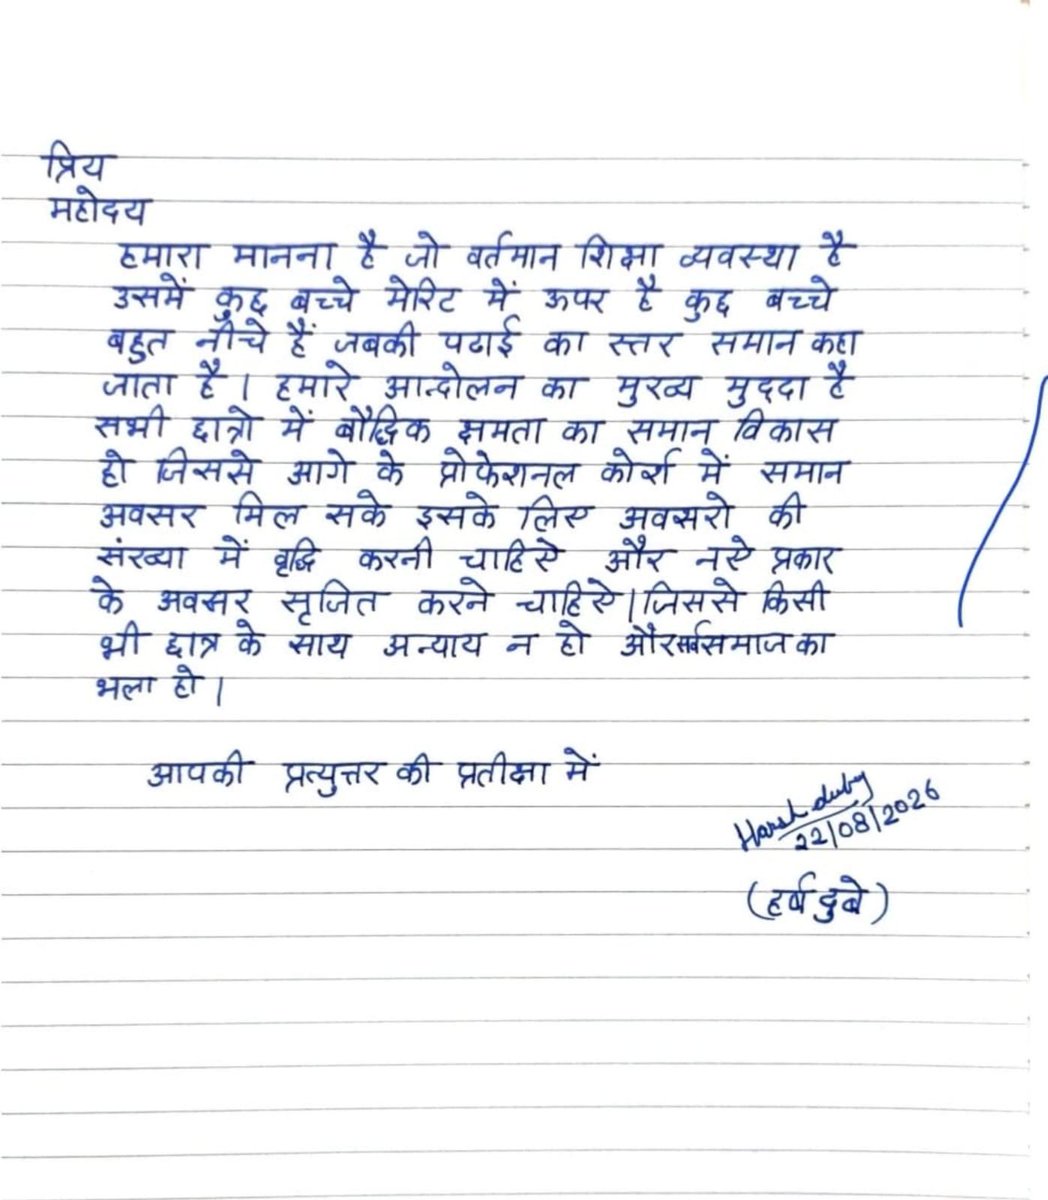 प्रिय
महोदय
हमारा मानना है जो वर्तमान शिक्षा व्यवस्था है
उसमें कुछ बच्चे मेरिट में ऊपर है कुछ बच्चे
बहुत नीचे हैं जबकी पढाई का स्तर समान कहा
जाता है। हमारे आन्दोलन का मुख्य मुद्दा है
सभी छात्रो में बौद्धिक क्षमता का समान विकास
हो जिससे आगे के प्रोफेशनल कोर्स में समान
अवसर मिल सके इसके लिए अवसरो की
संख्या में वृद्धि करनी चाहिऐ और नऐ प्रकार
के अवसर सृजित करने चाहिऐ।जिससे किसी
भी छात्र के साथ अन्याय न हो और सर्वसमाज का
भला हो।
आपकी प्रत्युत्तर की प्रतीक्षा में
Harsh dubey
22/08/2026
(हर्ष दुबे)